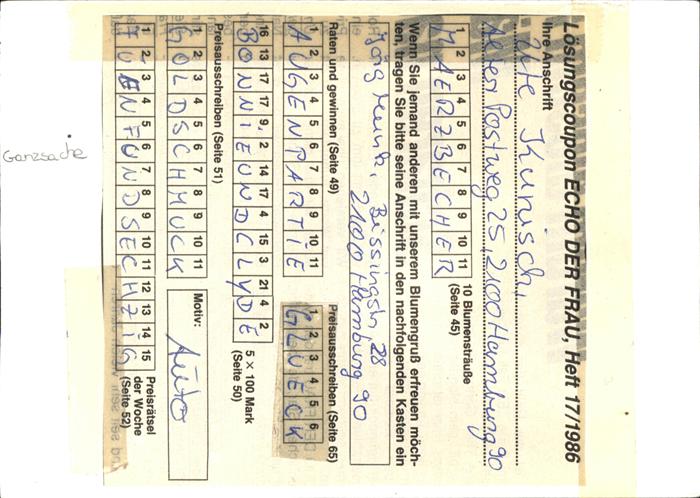 Lösungscoupon ECHO DER FRAU, Heft 17/1986
Ihre Anschrift
Ute Kunisch,
Alter Postweg 25, 2100 Hamburg 90
1 2 3 4 5 6 7 8 9 10 11
MAERZBECHER
10 Blumensträuße
(Seite 45)
Wenn Sie jemand anderen mit unserem Blumengruß erfreuen möch-
ten, tragen Sie bitte seine Anschrift in den nachfolgenden Kasten ein
Jörg 28
2100 Hamburg 90
Raten und gewinnen (Seite 49)
1 2 3 4 5 6 7 8 9 10 11
AUGENPARTIE
Preisausschreiben (Seite 65)
1 2 3 4 5 6
GLUECK
16 13 17 17 9 2 14 17 4 15 3 21 4 2
BONNIEUNDCLYDE
5 × 100 Mark
(Seite 50)
Preisausschreiben (Seite 51)
1 2 3 4 5 6 7 8 9 10 11
GOLDSCHMUCK
Motiv:
Auto
1 2 3 4 5 6 7 8 9 10 11 12 13 14 15
FUENFUNDSECHZIG
Preisrätsel
der Woche
(Seite 52)
Ganzsache